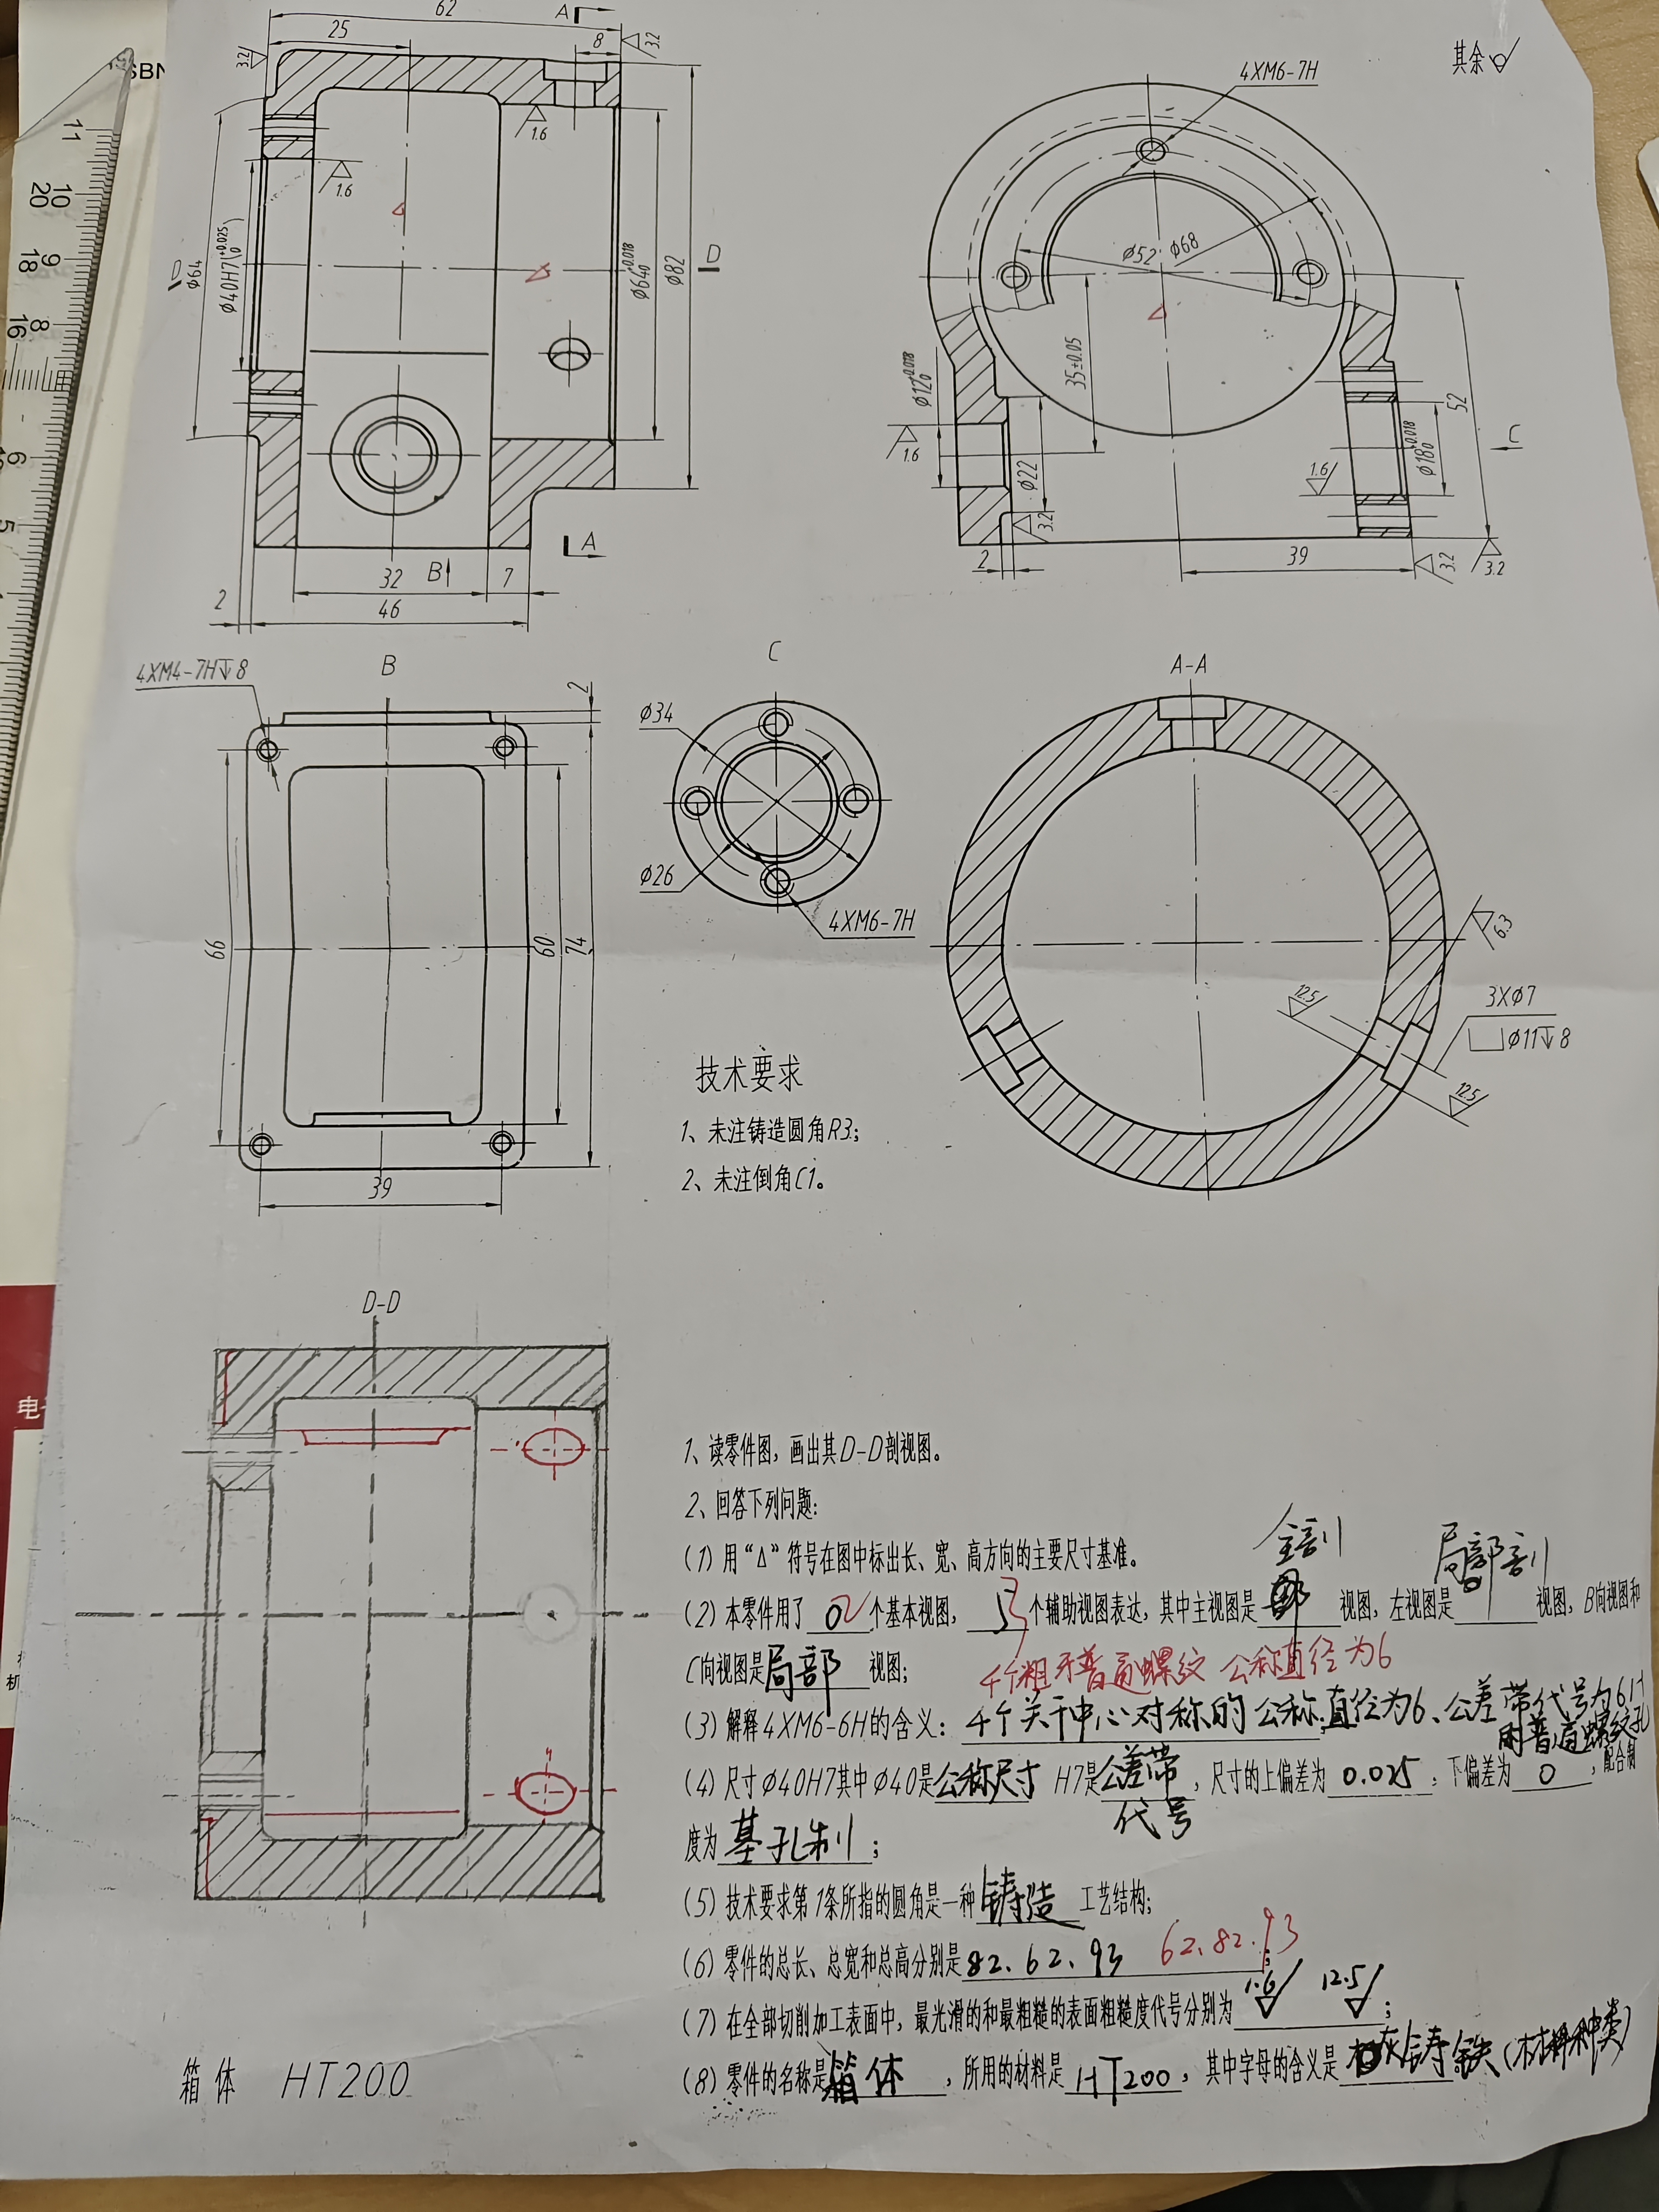 62
25
A
8
3.2
3.2
1.6
1.6
Φ64
Φ40H7(+0.025 0)
D
D
Φ64 +0.018 0
Φ82
B
A
32
7
2
46
其余
4XM6-7H
Φ52
Φ68
35±0.05
52
Φ12 +0.018 0
1.6
Φ22
3.2
2
39
1.6
Φ18 +0.018 0
C
3.2
3.2
4XM4-7H↧8
B
2
66
60
74
39
C
Φ34
Φ26
4XM6-7H
A-A
6.3
12.5
3XΦ7
⌴Φ11↧8
12.5
技术要求
1、未注铸造圆角R3;
2、未注倒角C1。
D-D
1、读零件图，画出其D-D剖视图。
2、回答下列问题:
(1) 用“Δ”符号在图中标出长、宽、高方向的主要尺寸基准。
(2) 本零件用了 2 个基本视图， 3 个辅助视图表达，其中主视图是 全剖 视图，左视图是 局部剖 视图，B向视图和
C向视图是 局部 视图;
4个粗牙普通螺纹 公称直径为6
(3) 解释4XM6-6H的含义: 4个关于中心对称的公称直径为6、公差带代号为6H
的普通螺纹孔
(4) 尺寸Φ40H7其中Φ40是 公称尺寸 H7是 公差带代号 ，尺寸的上偏差为 0.025 ，下偏差为 0 ，配合制
度为 基孔制 ;
(5) 技术要求第1条所指的圆角是一种 铸造 工艺结构;
(6) 零件的总长、总宽和总高分别是 82.62.93 ; 62.82.93
(7) 在全部切削加工表面中，最光滑的和最粗糙的表面粗糙度代号分别为 1.6 12.5 ;
(8) 零件的名称是 箱体 ，所用的材料是 HT200 ，其中字母的含义是 灰铸铁(材料种类)
箱体 HT200
SBN
11
10
20
9
18
8
16
6
5
电
机